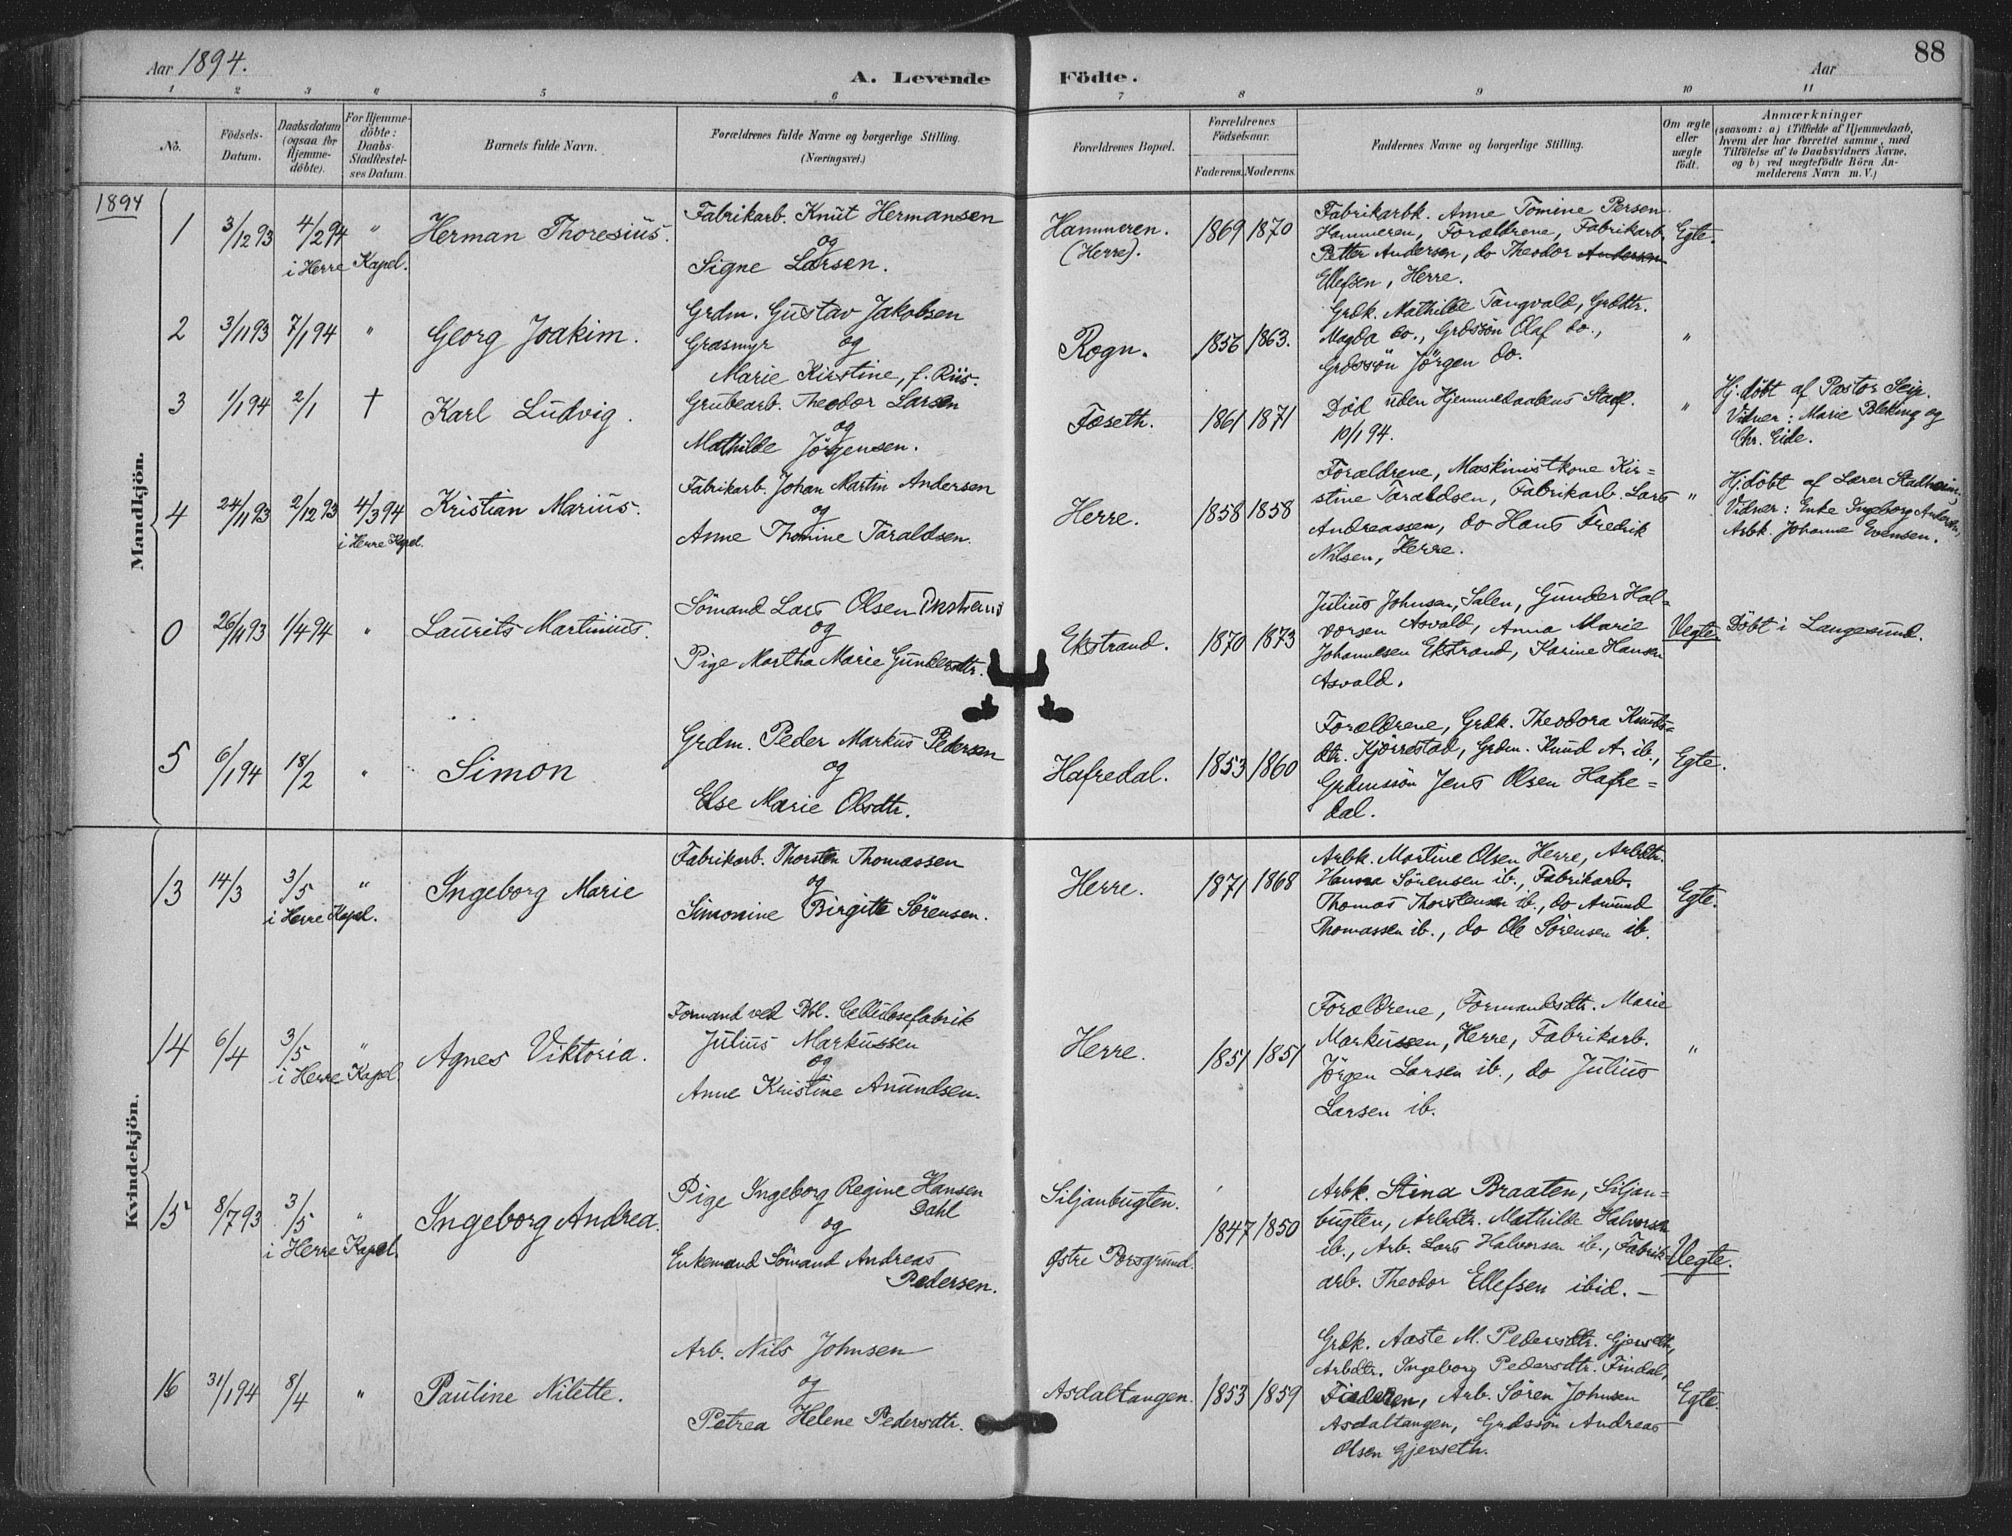 Aar 1894.
A. Levende Födte.
Aar
88
1 2 3 4 5 6 7 8 9 10 11
No.
Födsels-Datum.
Daabsdatum (ogsaa for Hjemme-döbte).
For Hjemme-döbte: Daabs-Stadfæstel-ses Datum.
Barnets fulde Navn.
Forældrenes fulde Navne og borgerlige Stilling. (Næringsvei.)
Forældrenes Bopæl.
Forældrenes Födselsaar.
Faderens. Moderens.
Faddernes Navne og borgerlige Stilling.
Om ægte eller uægte födt.
Anmærkninger
(saasom: a) i Tilfælde af Hjemmedaab,
hvem der har forrettet samme, med
Tilföielse af to Daabsvidners Navne,
og b) ved uægtefödte Börn An-
melderens Navn m. V.)
Mandkjön.
1894
1 3/12 93 4/2 94 " Herman Thoresius. Fabrikarb. Knut Hermansen
i Herre Kapel.
og
Signe Larsen.
Hammeren. (Herre). 1869 1870
Fabrikarbk. Anne Tomine Persen
Hammeren, Forældrene, Fabrikarb.
Petter Andersen, do Theodor Andersen
Ellefsen, Herre.
Egte.
2 3/11 93 7/1 94 " Georg Joakim. Grdm. Gustav Jakobsen
Grasmyr og
Marie Kirstine, f. Riis.
Rogn. 1856 1863.
Grdk. Mathilde Tangvald, Grddtr.
Magda do., Grdssön Olaf do.,
Grdssön Jörgen do.
"
3 1/1 94 2/1 † Karl Ludvig. Grubearb. Theodor Larsen
og
Mathilde Jörgensen.
Foseth. 1861 1871
Död uden Hjemmedaabens Stadf.
10/1 94.
"
Hj.döbt af Pastor Seip.
Vidner: Marie Bleking og
Chr. Eide.
4 24/11 93 2/12 93 4/3 94 Kristian Marius. Fabrikarb. Johan Martin Andersen
i Herre Kapel.
og
Anne Thomine Taraldsen.
Herre. 1858 1858
Forældrene, Maskinistkone Kir=
stine Taraldsen, Fabrikarb. Lars
Andreassen, do Hans Fredrik
Nilsen, Herre.
"
Hj.döbt af Lærer Stadheim,
Vidner: Enke Ingeborg
Arbk. Johanne Evensen.
0 26/11 93 1/4 94 " Laurits Martinius. Sömand Lars Olsen
og
Pige Martha Marie Gundersdtr.
Ekstrand. 1870 1873
Julius Johnsen, Salen, Gunder Hal=
vorsen Asvald, Anna Marie
Johannesen Ekstrand, Karine Hansen
Asvald.
Uegte.
Döbt i Langesund.
5 6/1 94 18/2 " Simon Grdm. Peder Markus Pedersen
og
Else Marie Olsdtr.
Hafredal. 1853 1860
Forældrene, Grdk. Theodora Knuts=
dtr. Kjörrestad, Grdm. Knud A. ib.,
Grdmssön Jens Olsen Hafre=
dal.
Egte.
Kvindekjön.
13 14/3 3/5 " Ingeborg Marie Fabrikarb. Thorsten Thomassen
i Herre Kapel.
og
Simonine Birgitte Sörensen.
Herre. 1871 1868
Arbk. Martine Olsen Herre, Arbdtr.
Hanna Sörensen ib., Fabrikarb.
Thomas Thorstensen ib., do Amund
Thomassen ib., do Ole Sörensen ib.
Egte.
14 6/4 3/5 " Agnes Viktoria. Formand ved Cellulosefabrik
i Herre Kapel.
Julius Markussen
og
Anne Kristine Amundsen.
Herre. 1851 1851
Forældrene, Formandsdtr. Marie
Markussen, Herre, Fabrikarb.
Jörgen Larsen ib., do Julius
Larsen ib.
"
15 8/7 93 3/5 " Ingeborg Andrea. Pige Ingeborg Regine Hansen
Dahl
i Herre Kapel.
og
Enkemand Sömand Andreas
Pedersen.
Siljanbugten.
Østre Porsgrund. 1847 1850
Arbk. Stina Braaten, Siljan=
bugten, Arbdtr. Mathilde Halvorsen
ib., Arb. Lars Halvorsen ib., Fabrik=
arb. Theodor Ellefsen ibid. —
Uegte.
16 31/1 94 8/4 " Pauline Nilette. Arb. Nils Johnsen
og
Petrea Helene Pedersdtr.
Asdaltangen. 1853 1859
Grdk. Aaste M. Pedersdtr. Gjerseth,
Arbdtr. Ingeborg Pedersdtr. Findal,
Faderen, Arb. Sören Johnsen
Asdaltangen, Grdssön Andreas
Olsen Gjerseth.
Egte.